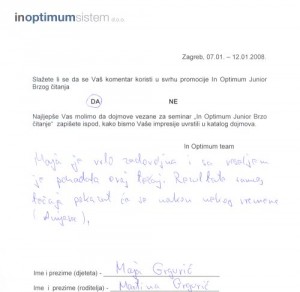 inoptimumsistem d.o.o.
Zagreb, 07.01. – 12.01.2008.
Slažete li se da se Vaš komentar koristi u svrhu promocije In Optimum Junior
Brzog čitanja
DA NE
Najljepše Vas molimo da dojmove vezane za seminar „In Optimum Junior Brzo
čitanje" zapišete ispod, kako bismo Vaše impresije uvrstili u katalog dojmova.
In Optimum team
Maja je vrlo zadovoljna i sa veseljem
je pohađala ovaj tečaj. Rezultate samog
tečaja pokazat će se nakon nekog vremena
Ime i prezime (djeteta) - Maja Grgurić
Ime i prezime (roditelja) - Martina Grgurić